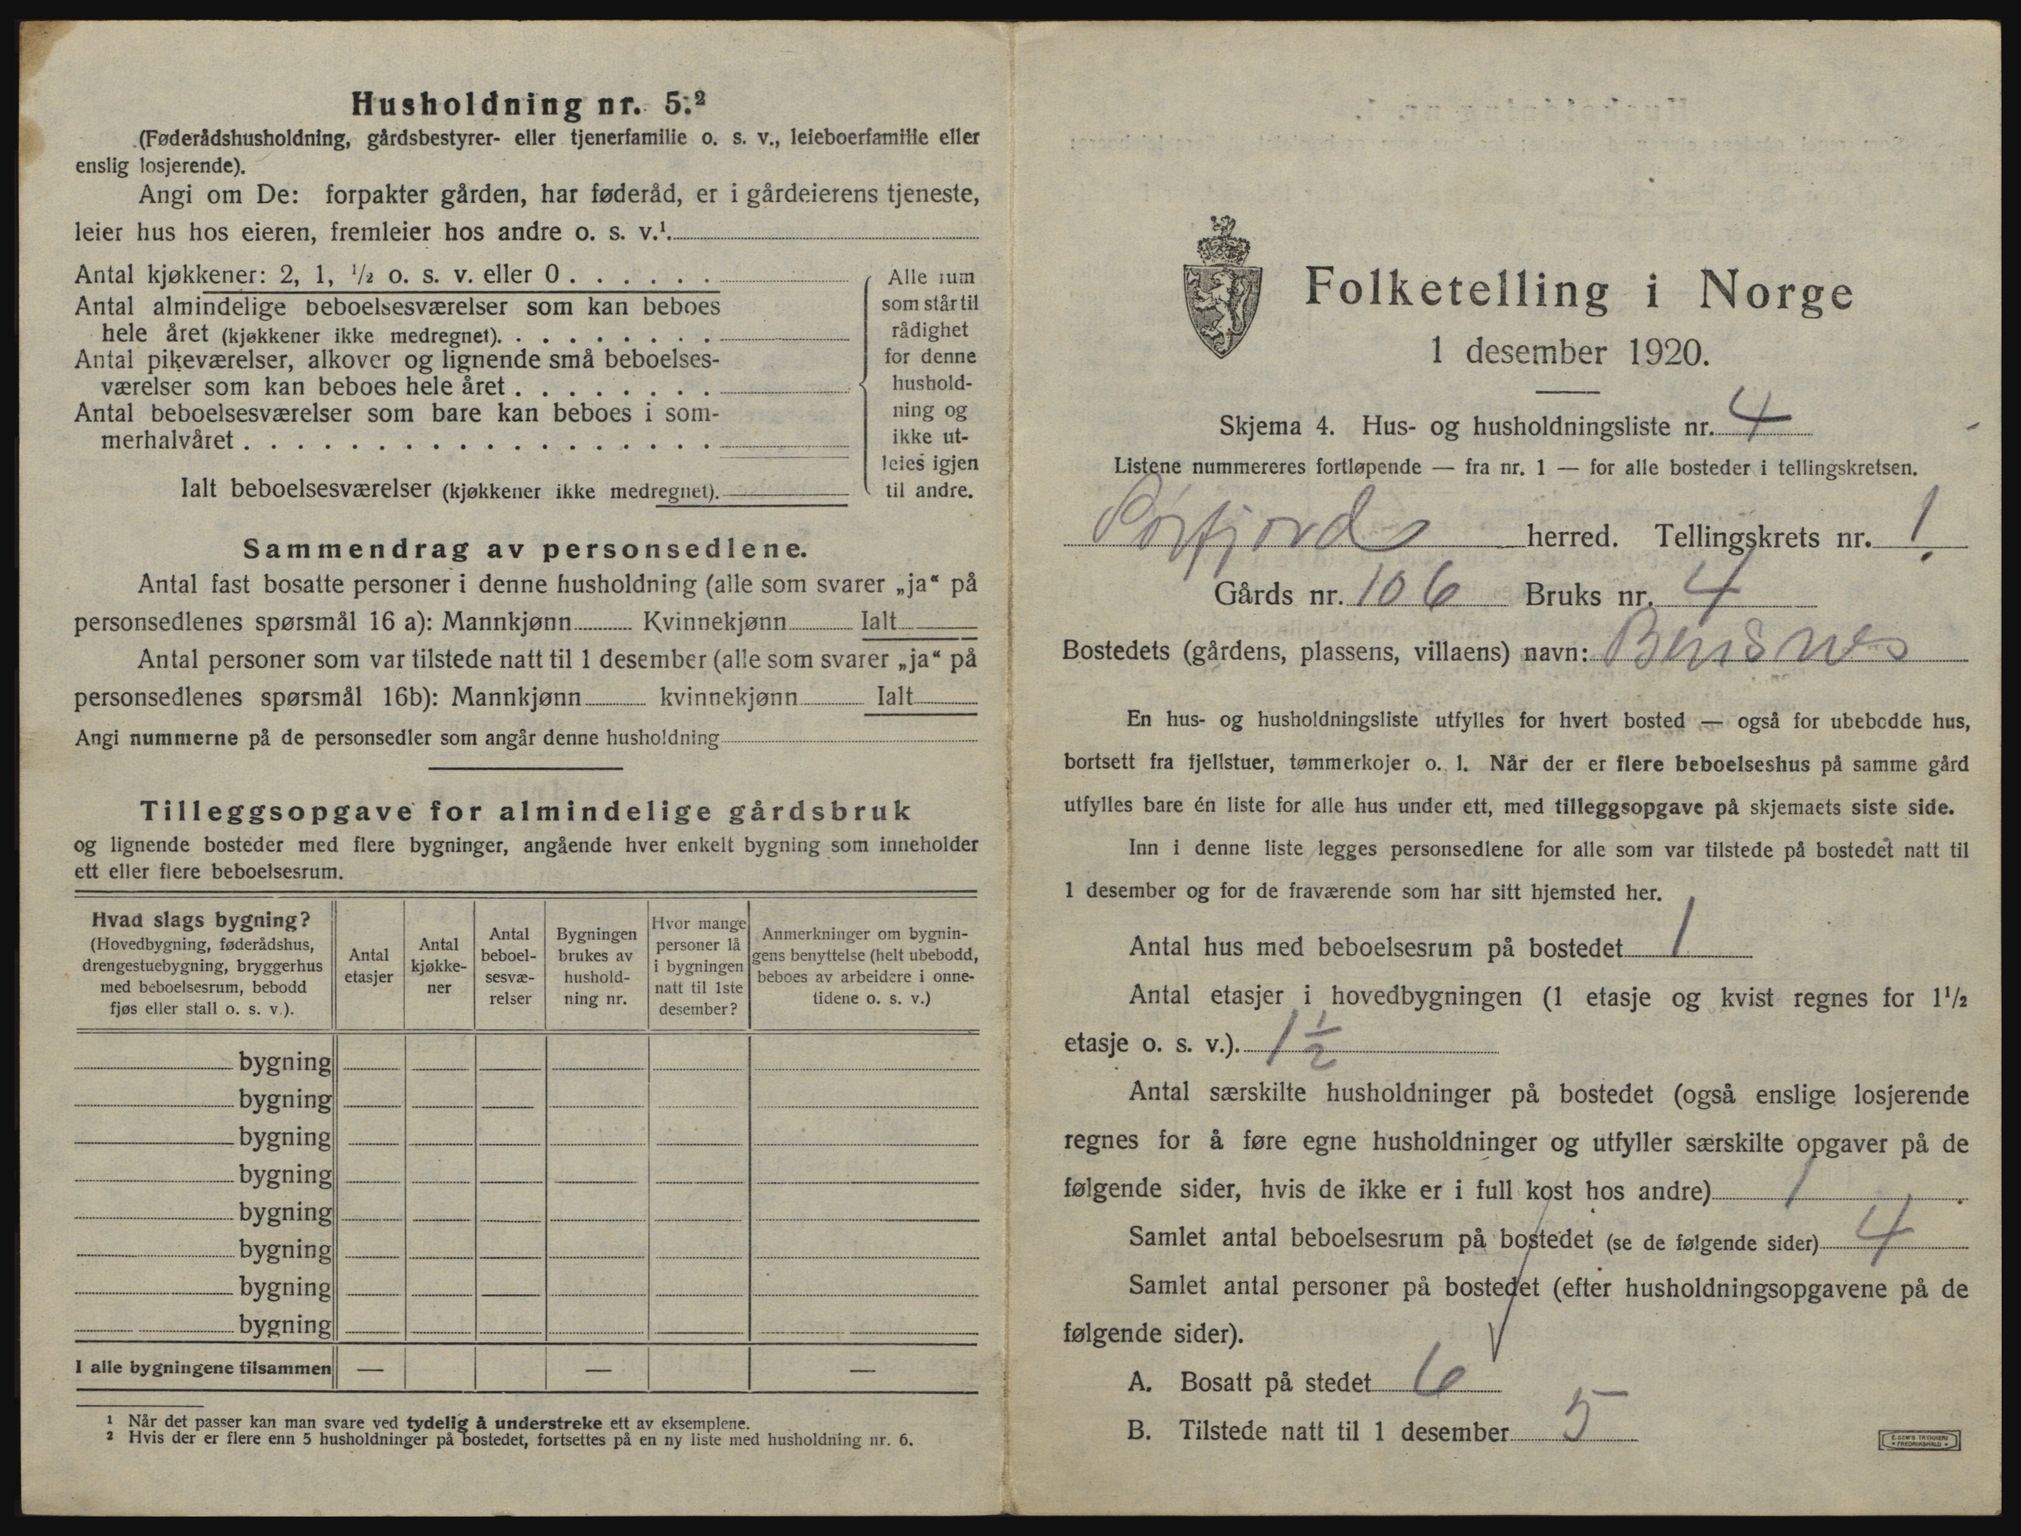 Husholdning nr. 5.²
(Føderådshusholdning, gårdsbestyrer- eller tjenerfamilie o. s. v., leieboerfamilie eller
enslig losjerende).
Angi om De: forpakter gården, har føderåd, er i gårdeierens tjeneste,
leier hus hos eieren, fremleier hos andre o. s. v.¹.
Antal kjøkkener: 2, 1, ¹/₂ o. s. v. eller 0 . . . . . .
Antal almindelige beboelsesværelser som kan beboes
hele året (kjøkkener ikke medregnet). . . . . . . . .
Antal pikeværelser, alkover og lignende små beboelses-
værelser som kan beboes hele året . . . . . . . .
Antal beboelsesværelser som bare kan beboes i som-
merhalvåret . . . . . . . . . . . . . . . . . .
Ialt beboelsesværelser (kjøkkener ikke medregnet).
Alle rum
som står til
rådighet
for denne
hushold-
ning og
ikke ut-
leies igjen
til andre.
Sammendrag av personsedlene.
Antal fast bosatte personer i denne husholdning (alle som svarer „ja“ på
personsedlenes spørsmål 16 a): Mannkjønn Kvinnekjønn Ialt
Antal personer som var tilstede natt til 1 desember (alle som svarer „ja“ på
personsedlenes spørsmål 16b): Mannkjønn kvinnekjønn Ialt
Angi nummerne på de personsedler som angår denne husholdning
Tilleggsopgave for almindelige gårdsbruk
og lignende bosteder med flere bygninger, angående hver enkelt bygning som inneholder
ett eller flere beboelsesrum.
Hvad slags bygning?
(Hovedbygning, føderådshus,
drengestuebygning, bryggerhus
med beboelsesrum, bebodd
fjøs eller stall o. s. v.).
Antal
etasjer
Antal
kjøkke-
ner
Antal
beboel-
sesvæ-
relser
Bygningen
brukes av
hushold-
ning nr.
Hvor mange
personer lå
i bygningen
natt til 1ste
desember?
Anmerkninger om bygnin-
gens benyttelse (helt ubebodd,
beboes av arbeidere i onne-
tidene o. s. v.)
bygning
bygning
bygning
bygning
bygning
bygning
bygning
bygning
I alle bygningene tilsammen — — —
¹ Når det passer kan man svare ved tydelig å understreke ett av eksemplene.
² Hvis der er flere enn 5 husholdninger på bostedet, fortsettes på en ny liste med husholdning nr. 6.
Folketelling i Norge
1 desember 1920.
Skjema 4. Hus- og husholdningsliste nr. 4
Listene nummereres fortløpende — fra nr. 1 — for alle bosteder i tellingskretsen.
Sørfjords herred. Tellingskrets nr. 1.
Gårds nr. 106 Bruks nr. 4
Bostedets (gårdens, plassens, villaens) navn: Bensnes
En hus- og husholdningsliste utfylles for hvert bosted — også for ubebodde hus,
bortsett fra fjellstuer, tømmerkojer o. l. Når der er flere beboelseshus på samme gård
utfylles bare én liste for alle hus under ett, med tilleggsopgave på skjemaets siste side.
Inn i denne liste legges personsedlene for alle som var tilstede på bostedet natt til
1 desember og for de fraværende som har sitt hjemsted her.
Antal hus med beboelsesrum på bostedet 1
Antal etasjer i hovedbygningen (1 etasje og kvist regnes for 1¹/₂
etasje o. s. v.). 1½
Antal særskilte husholdninger på bostedet (også enslige losjerende
regnes for å føre egne husholdninger og utfyller særskilte opgaver på de
følgende sider, hvis de ikke er i full kost hos andre) 1.
Samlet antal beboelsesrum på bostedet (se de følgende sider) 4
Samlet antal personer på bostedet (efter husholdningsopgavene på de
følgende sider).
A. Bosatt på stedet 6
B. Tilstede natt til 1 desember 5
E. SEM'S TRYKKERI
• FREDRIKSHALD •